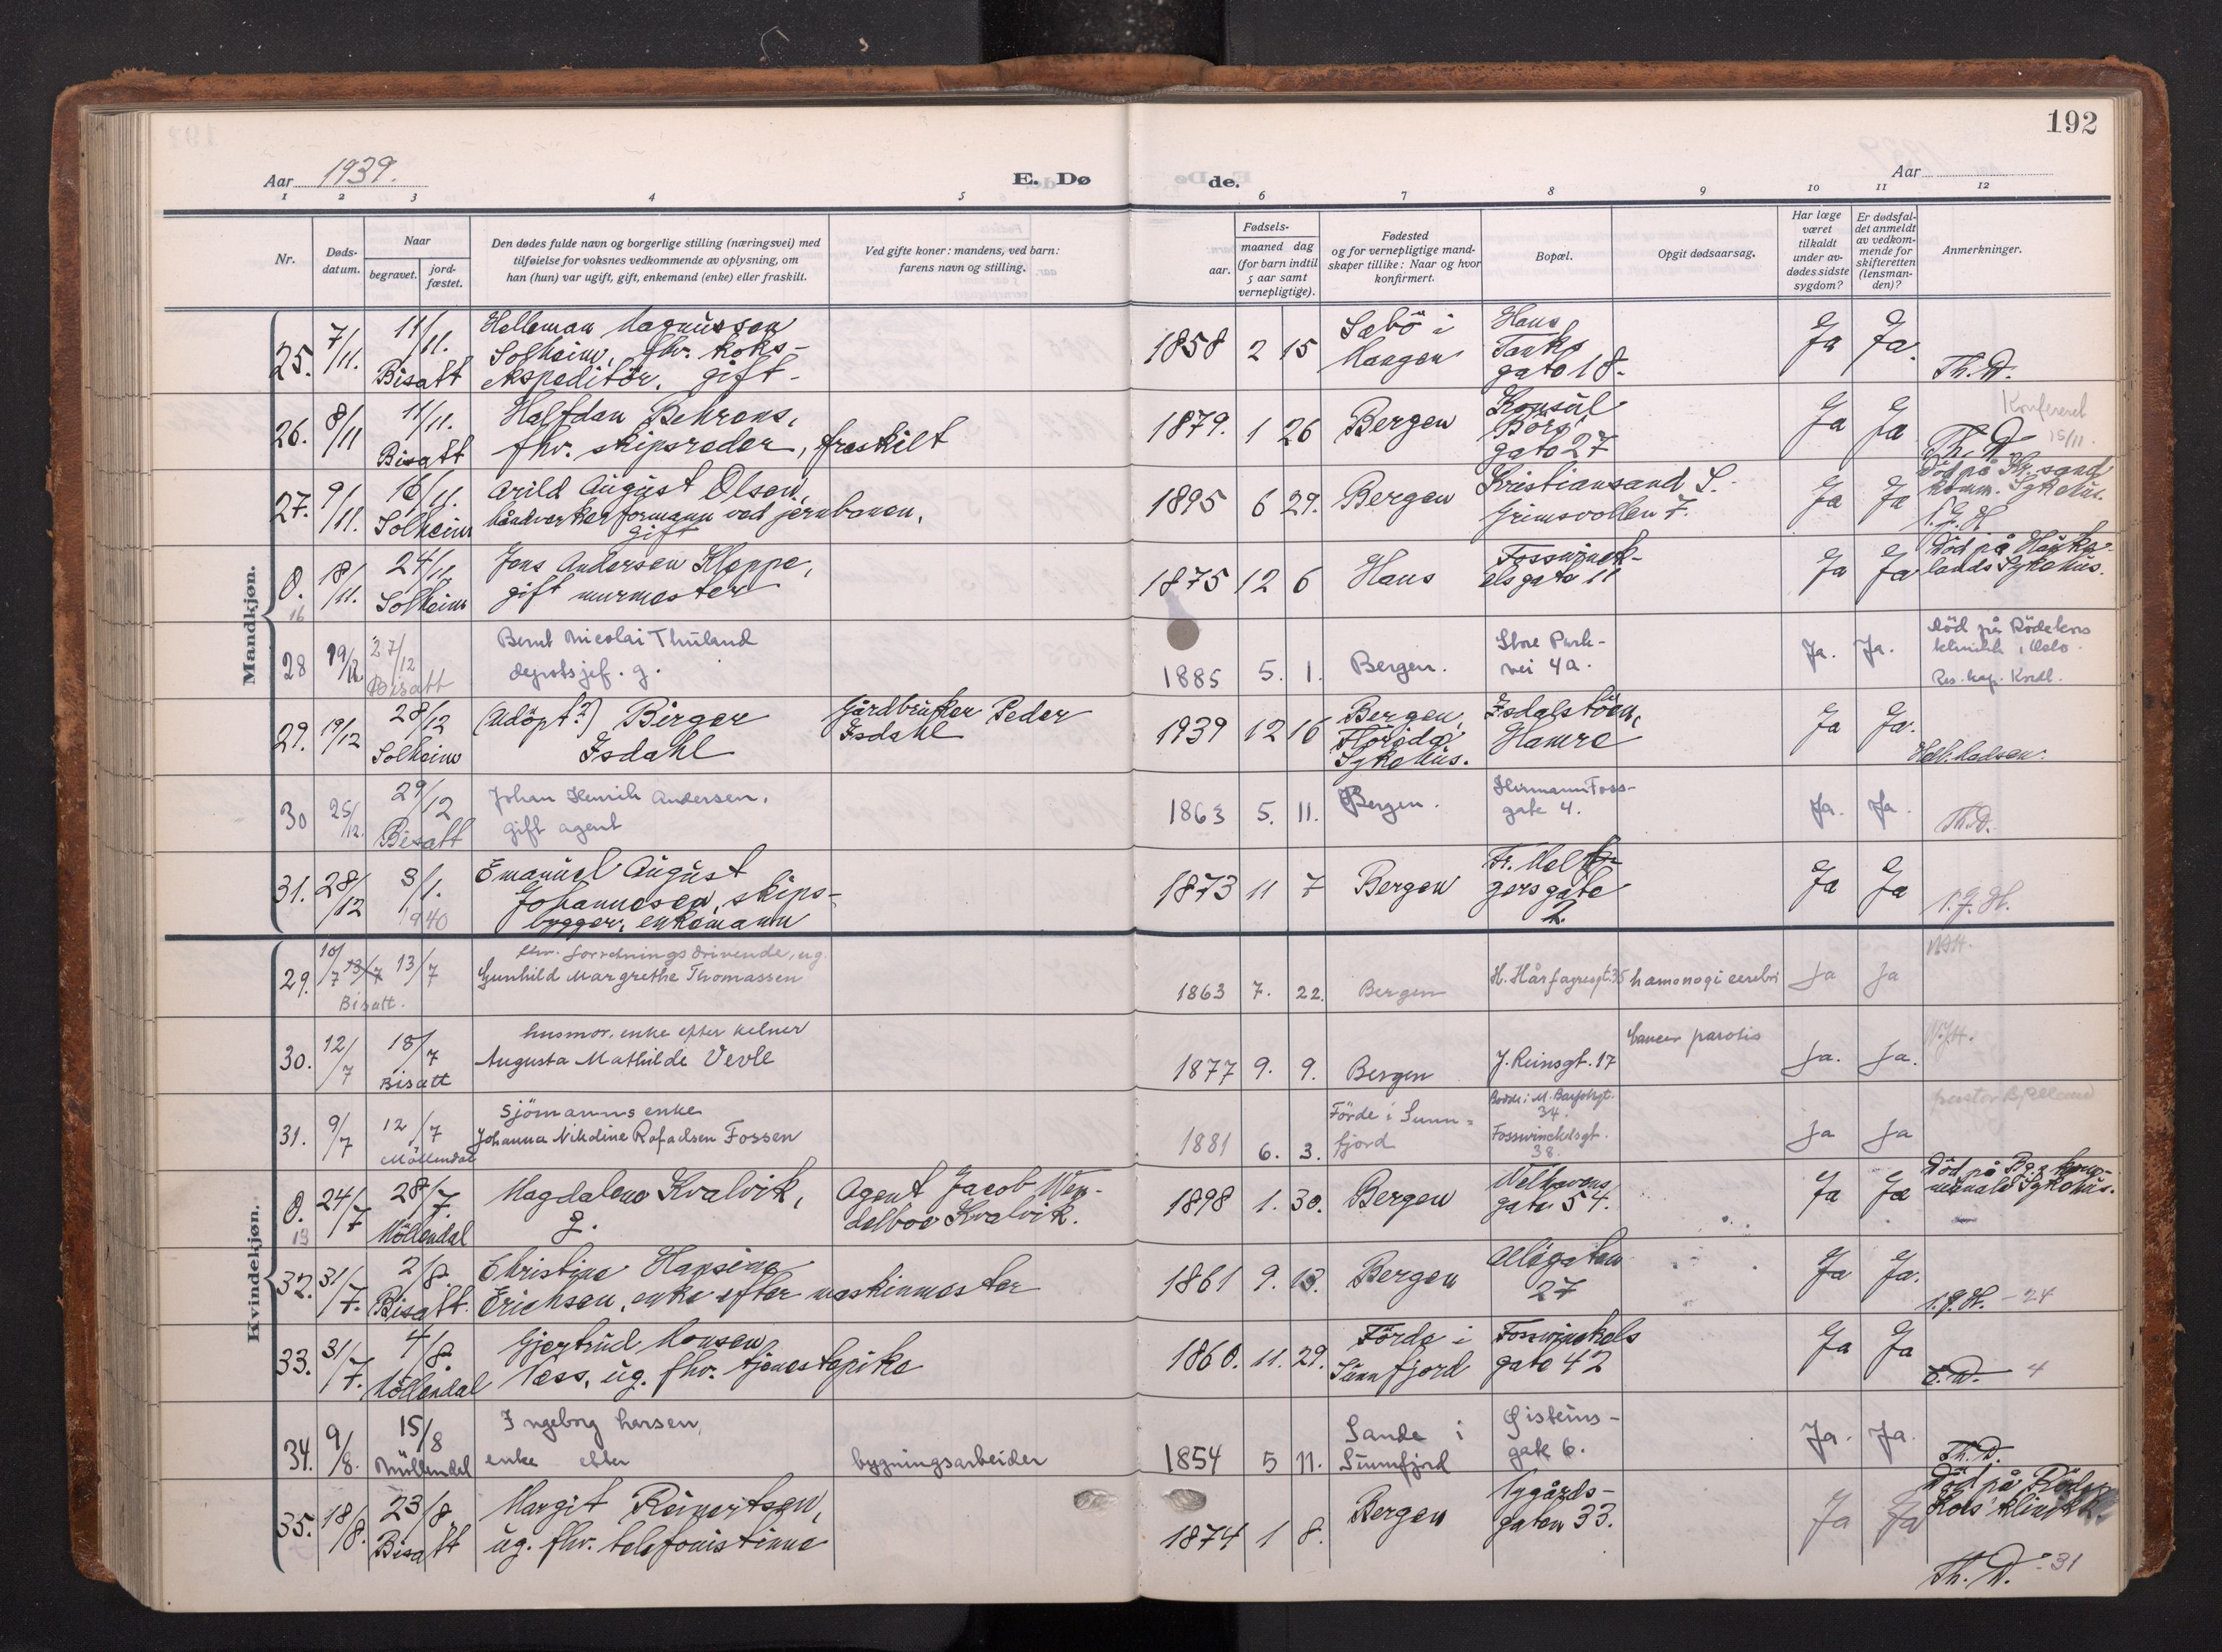 192
Aar 1939.
E. Døde.
Aar
1 2 3 4 5 6 7 8 9 10 11 12
Nr.
Døds-
datum.
Naar
begravet.
jord-
fæstet.
Den dødes fulde navn og borgerlige stilling (næringsvei) med
tilføielse for voksnes vedkommende av oplysning, om
han (hun) var ugift, gift, enkemand (enke) eller fraskilt.
Ved gifte koner: mandens, ved barn:
farens navn og stilling.
Fødsels-
aar.
maaned dag
(for barn indtil
5 aar samt
vernepligtige).
Fødested
og for vernepligtige mand-
skaper tillike: Naar og hvor
konfirmert.
Bopæl.
Opgit dødsaarsag.
Har læge
været
tilkaldt
under av-
dødes sidste
sygdom?
Er dødsfal-
det anmeldt
av vedkom-
mende for
skifteretten
(lensman-
den)?
Anmerkninger.
Mandkjøn.
25. 7/11. 11/11. Bisatt
Magnusson
Solheim, fhv. koks-
ekspeditør. gift-
1858 2 15
Sæbö i
Mangen
Hans
Tanks
gate 18.
Ja Ja.
Th. D.
26. 8/11 11/11. Bisatt
Halfdan Behrens,
fhv. skipsreder, fraskilt
1879. 1 26
Bergen
Konsul
Börs
gate 27
Ja Ja
Th. D.
15/11.
27. 9/11. 16/11. Solheim
Arild August Olsen,
håndverkerformann ved jernbanen,
gift
1895 6 29.
Bergen
Kristiansand S.
Grimsvollen 7.
Ja Ja
Död på Kr.sand
komm. Sykehus.
0. 16 18/11. 24/11. Solheim
Jens Andersen Kleppe,
gift murmester
1875 12 6
Haus
Fosswinck-
elsgate 11
Ja Ja
Död på Hauke-
lands Sykehus.
28 19/12 27/12 Bisatt
Bernt Nicolai Thuland
depotsjef. g.
1885 5. 1.
Bergen.
Store Park-
vei 4a.
Ja. Ja.
död på Rödekors
klinikk i Oslo.
Res. kap.
29. 19/12 28/12 Solheim
(Adöpt?) Birger
Isdahl
Gårdbruker Peder
Isdahl
1939 12 16
Bergen,
Florida
Sykehus.
Isdalstöen,
Hamre
Ja Ja.
30 25/12. 29/12 Bisatt
Johan Henrik Andersen.
gift agent
1863 5. 11.
Bergen.
Hermann Foss-
gate 4.
Ja. Ja.
Th. D.
31. 28/12 3/1. 1940
Emanuel August
Johannesen, skips-
bygger, enkemann
1873 11 7
Bergen
Fr. Melt-
zersgate
2.
Ja Ja
Kvindekjøn.
29. 10/7 13/7 13/7 Bisatt.
fhv. forretningsdrivende, ug.
Gunhild Margrethe Thomassen
1863 7. 22.
Bergen
H. Hårfagresgt. 35
hämonogi cerebri
Ja Ja
30. 12/7 18/7 Bisatt
husmor. enke efter kelner
Augusta Mathilde Vevle
1877 9. 9.
Bergen
J. Reinsgt. 17
Cancer parotis
Ja. Ja.
31. 9/7 12/7 Möllendal
Sjömanns enke
Johanna Nikoline Rafaelsen Fossen
1881 6. 3.
Förde i Sunn-
fjord
34.
Fosswinckelsgt.
38.
Ja Ja
pastor Bjelland
0. 13 24/7 28/7. Möllendal
Magdalene Kvalvik,
g.
Agent Jacob Wen-
delboe Kvalvik.
1898 1. 30.
Bergen
Welhavens
gate 54.
Ja Ja
Död på Bg.s kom-
munale Sykehus.
32. 31/7. 2/8. Bisatt.
Christine Hansine
Erichsen, enke efter maskinmester
1861 9. 13.
Bergen
Allégaten
27
Ja Ja.
24
33. 31/7. 4/8. Möllendal
Gjertrud Monsen
Næss, ug. fhv. tjenestepike
1860. 11. 29.
Förde i
Sunnfjord
Fosswinckels
gate 42
Ja Ja
4
34. 9/8. 15/8 Möllendal
Ingeborg Larsen,
enke efter
bygningsarbeider
1854 5 11.
Sande i
Sunnfjord
Øisteins-
gate 6.
Ja. Ja.
Th. D.
35. 18/8. 23/8. Bisatt
Margit Reinertsen,
ug. fhv. telefonistinne
1874 1 8.
Bergen
Nygårds-
gaten 33.
Ja Ja
Död på Röde
Kors' klinikk.
Th. D. 31